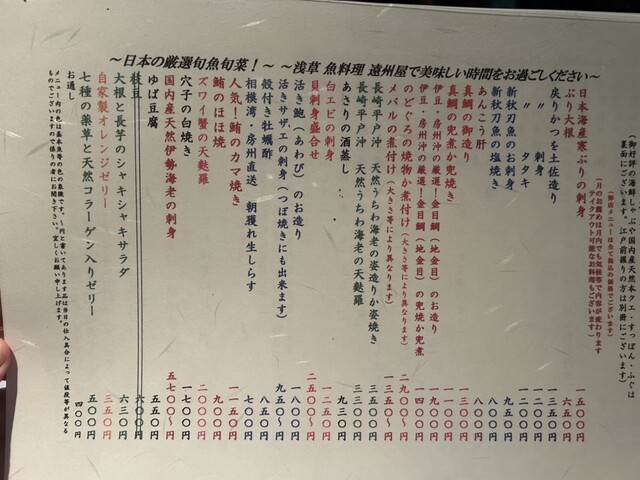 ～日本の厳選旬魚旬菜！～ ～浅草 魚料理 遠州屋で美味しい時間をお過ごしください～
御好評の海鮮しゃぶや国内産天然本クエ・すっぽん・ふぐは
裏面にございます。江戸前握りの方は別冊にございます。
(御前メニューは全て税込の価格でございます)
(月のお薦めは月内でも気候等で内容が変わります
テイクアウト可能なお料理もございます)
日本海産寒ぶりの刺身 一五〇〇円
ぶり大根 六五〇円
戻りかつを土佐造り 一三五〇円
〃 刺身 一二〇〇円
〃 タタキ 一二〇〇円
新秋刀魚のお刺身 九五〇円
新秋刀魚の塩焼き 八〇〇円
あんこう肝 八〇〇円
真鯛の御造り 一〇〇〇円
真鯛の兜煮か兜焼き 一一〇〇円
伊豆・房州沖の厳選！金目鯛（地金目）のお造り 一九〇〇円
伊豆・房州沖の厳選！金目鯛（地金目）の兜焼か兜煮 一四〇〇円
のどぐろの焼物か煮付け(大きさ等により異なります) 二九〇〇～
メバルの煮付け(大きさ等により異なります) 一三五〇～
長崎平戸沖 天然うちわ海老の姿造りか姿焼き 三三〇〇円
長崎平戸沖 天然うちわ海老の天麩羅 三五〇〇円
あさりの酒蒸し 九三〇円
白エビの刺身 一二五〇円
貝刺身盛合せ 二五〇〇～
活き鮑（あわび）のお造り 一八〇〇～
活きサザエの刺身（つぼ焼きにも出来ます） 九五〇～
殻付き牡蠣酢 八五〇円
相模湾・房州直送 朝獲れ生しらす 七〇〇円
人気！鮪のカマ焼き 一一五〇円
鮪のほほ焼 九〇〇円
ズワイ蟹の天麩羅 二〇〇〇円
穴子の白焼き 一七〇〇円
国内産天然伊勢海老の刺身 五七〇〇～
ゆば豆腐 五五〇円
枝豆 六〇〇円
大根と長芋のシャキシャキサラダ 六三〇円
自家製オレンジゼリー 三五〇円
七種の薬草と天然コラーゲン入りゼリー 五〇〇円
お通し 四〇〇円
メニュー内の色は基本魚等の色の象徴です。～円と書いてあります品は当日の仕入具合によって値段等が異なる
ものでございますので係りの者にお聞き下さい。宜しくお願い申し上げます。